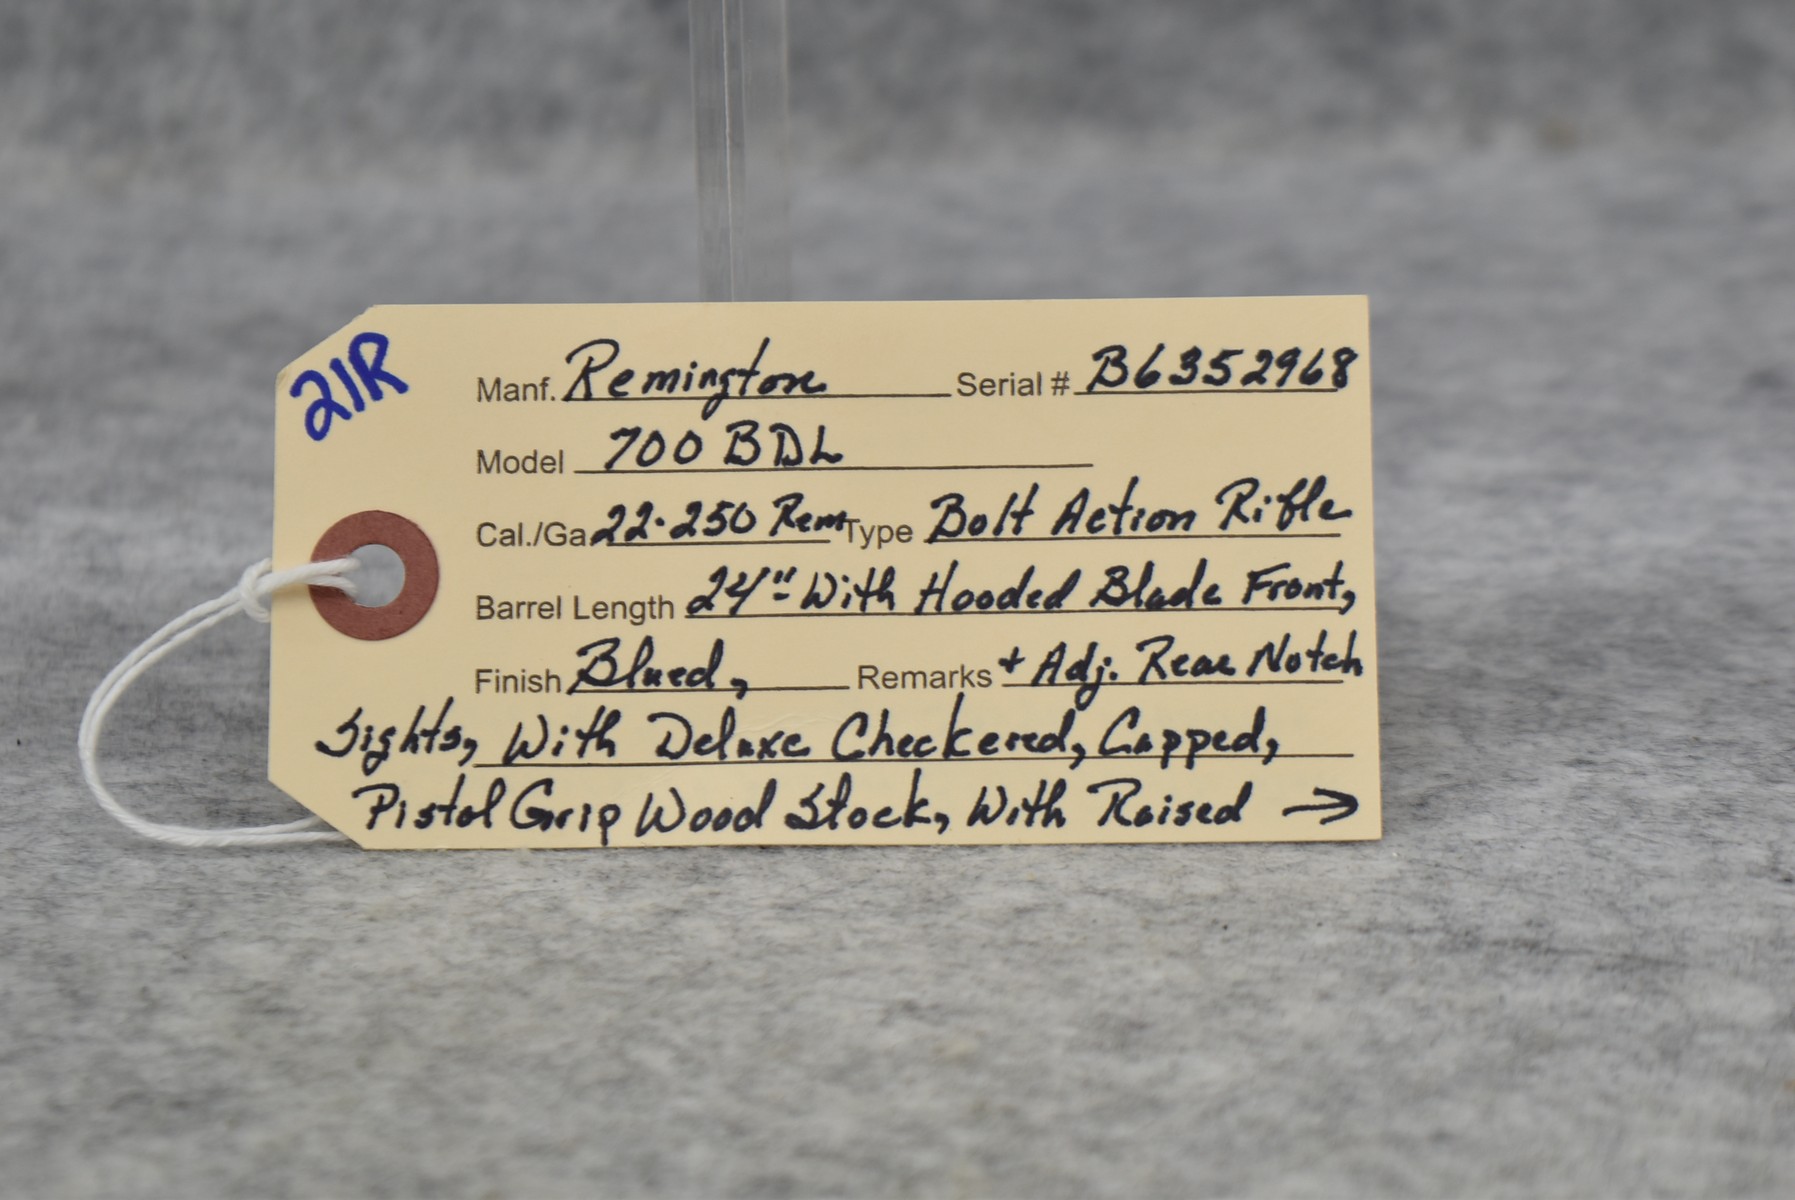 21R
Manf. Remington Serial # B6352968
Model 700 BDL
Cal./Ga 22-250 Rem Type Bolt Action Rifle
Barrel Length 24" With Hooded Blade Front,
Finish Blued, Remarks + Adj. Rear Notch
Sights, With Deluxe Checkered, Capped,
Pistol Grip Wood Stock, With Raised →